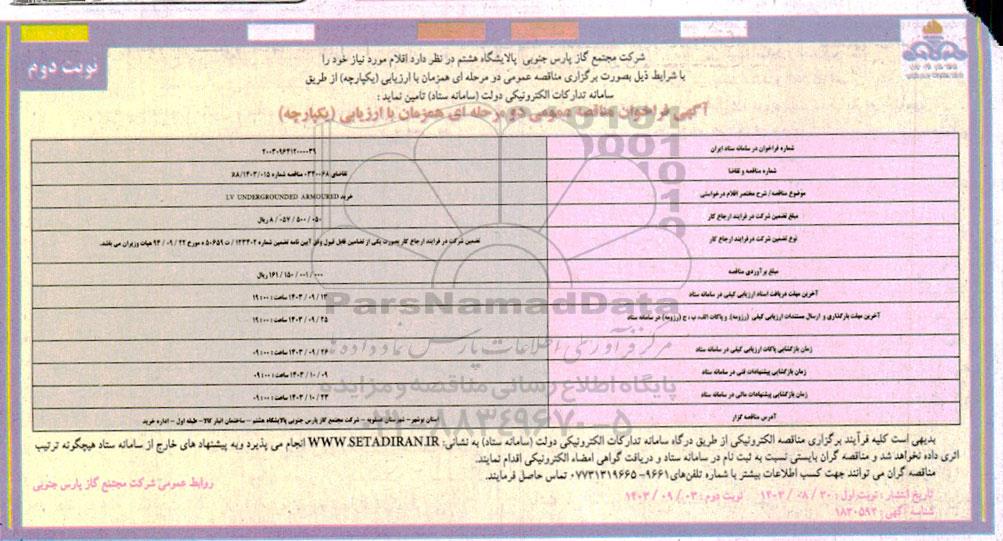 نوبت دوم
شرکت مجتمع گاز پارس جنوبی پالایشگاه هشتم در نظر دارد اقلام مورد نیاز خود را
با شرایط ذیل بصورت برگزاری مناقصه عمومی دو مرحله ای همزمان با ارزیابی (یکپارچه) از طریق
سامانه تدارکات الکترونیکی دولت (سامانه ستاد) تامین نماید :
آگهی فراخوان مناقصه عمومی دو مرحله ای همزمان با ارزیابی (یکپارچه)
شماره فراخوان در سامانه ستاد ایران ۲۰۰۳۰۹۶۴۱۲۰۰۰۰۳۹
شماره مناقصه و تقاضا تقاضای ۰۳۴۰۰۶۸ مناقصه شماره
موضوع مناقصه/ شرح مختصر اقلام درخواستی خرید LV UNDERGROUNDED ARMOURED
مبلغ تضمین شرکت در فرایند ارجاع کار ۸/۰۵۷/۵۰۰/۰۵۰ ریال
نوع تضمین شرکت در فرایند ارجاع کار تضمین شرکت در فرایند ارجاع کار بصورت یکی از تضامین قابل قبول وفق آیین نامه تضمین شماره ۱۲۳۴۰۲/ ت ۵۰۶۵۹ ه مورخ ۹۴/۰۹/۲۲ هیات وزیران می باشد.
مبلغ برآوردی مناقصه ۱۶۱/۱۵۰/۰۰۱/۰۰۰ ریال
آخرین مهلت دریافت اسناد ارزیابی کیفی در سامانه ستاد ۱۴۰۳/۰۹/۱۲ ساعت : ۱۹:۰۰
آخرین مهلت بارگذاری و ارسال مستندات ارزیابی کیفی (رزومه) و پاکات الف، ب ، ج (رزومه) در سامانه ستاد ۱۴۰۳/۰۹/۲۵ ساعت : ۱۹:۰۰
زمان بازگشایی پاکات ارزیابی کیفی در سامانه ستاد ۱۴۰۳/۰۹/۲۶ ساعت : ۰۹:۰۰
زمان بازگشایی پیشنهادات فنی در سامانه ستاد ۱۴۰۳/۱۰/۰۹ ساعت : ۰۹:۰۰
زمان بازگشایی پیشنهادات مالی در سامانه ستاد ۱۴۰۳/۱۰/۲۳ ساعت : ۰۹:۰۰
آدرس مناقصه گزار استان بوشهر – شهرستان عسلویه – شرکت مجتمع گاز پارس جنوبی پالایشگاه هشتم – ساختمان انبار کالا – طبقه اول – اداره خرید
ParsNamadData
مرکز فرآوری اطلاعات پارس نماد داده ها
پایگاه اطلاع رسانی مناقصه و مزایده
۰۲۱-۸۸۳۴۹۶۷۰-۵
بدیهی است کلیه فرآیند برگزاری مناقصه الکترونیکی از طریق درگاه سامانه تدارکات الکترونیکی دولت (سامانه ستاد) به نشانی: WWW.SETADIRAN.IR انجام می پذیرد وبه پیشنهاد های خارج از سامانه ستاد هیچگونه ترتیب
اثری داده نخواهد شد و مناقصه گران بایستی نسبت به ثبت نام در سامانه ستاد و دریافت گواهی امضاء الکترونیکی اقدام نمایند.
مناقصه گران می توانند جهت کسب اطلاعات بیشتر با شماره تلفن‌های ۹۶۶۱–۰۷۷۳۱۳۱۹۶۶۵ تماس حاصل فرمایند.
روابط عمومی شرکت مجتمع گاز پارس جنوبی
تاریخ انتشار : نوبت اول : ۱۴۰۳/۰۸/۳۰ نوبت دوم : ۱۴۰۳/۰۹/۰۳
شناسه آگهی : ۱۸۳۰۵۹۲